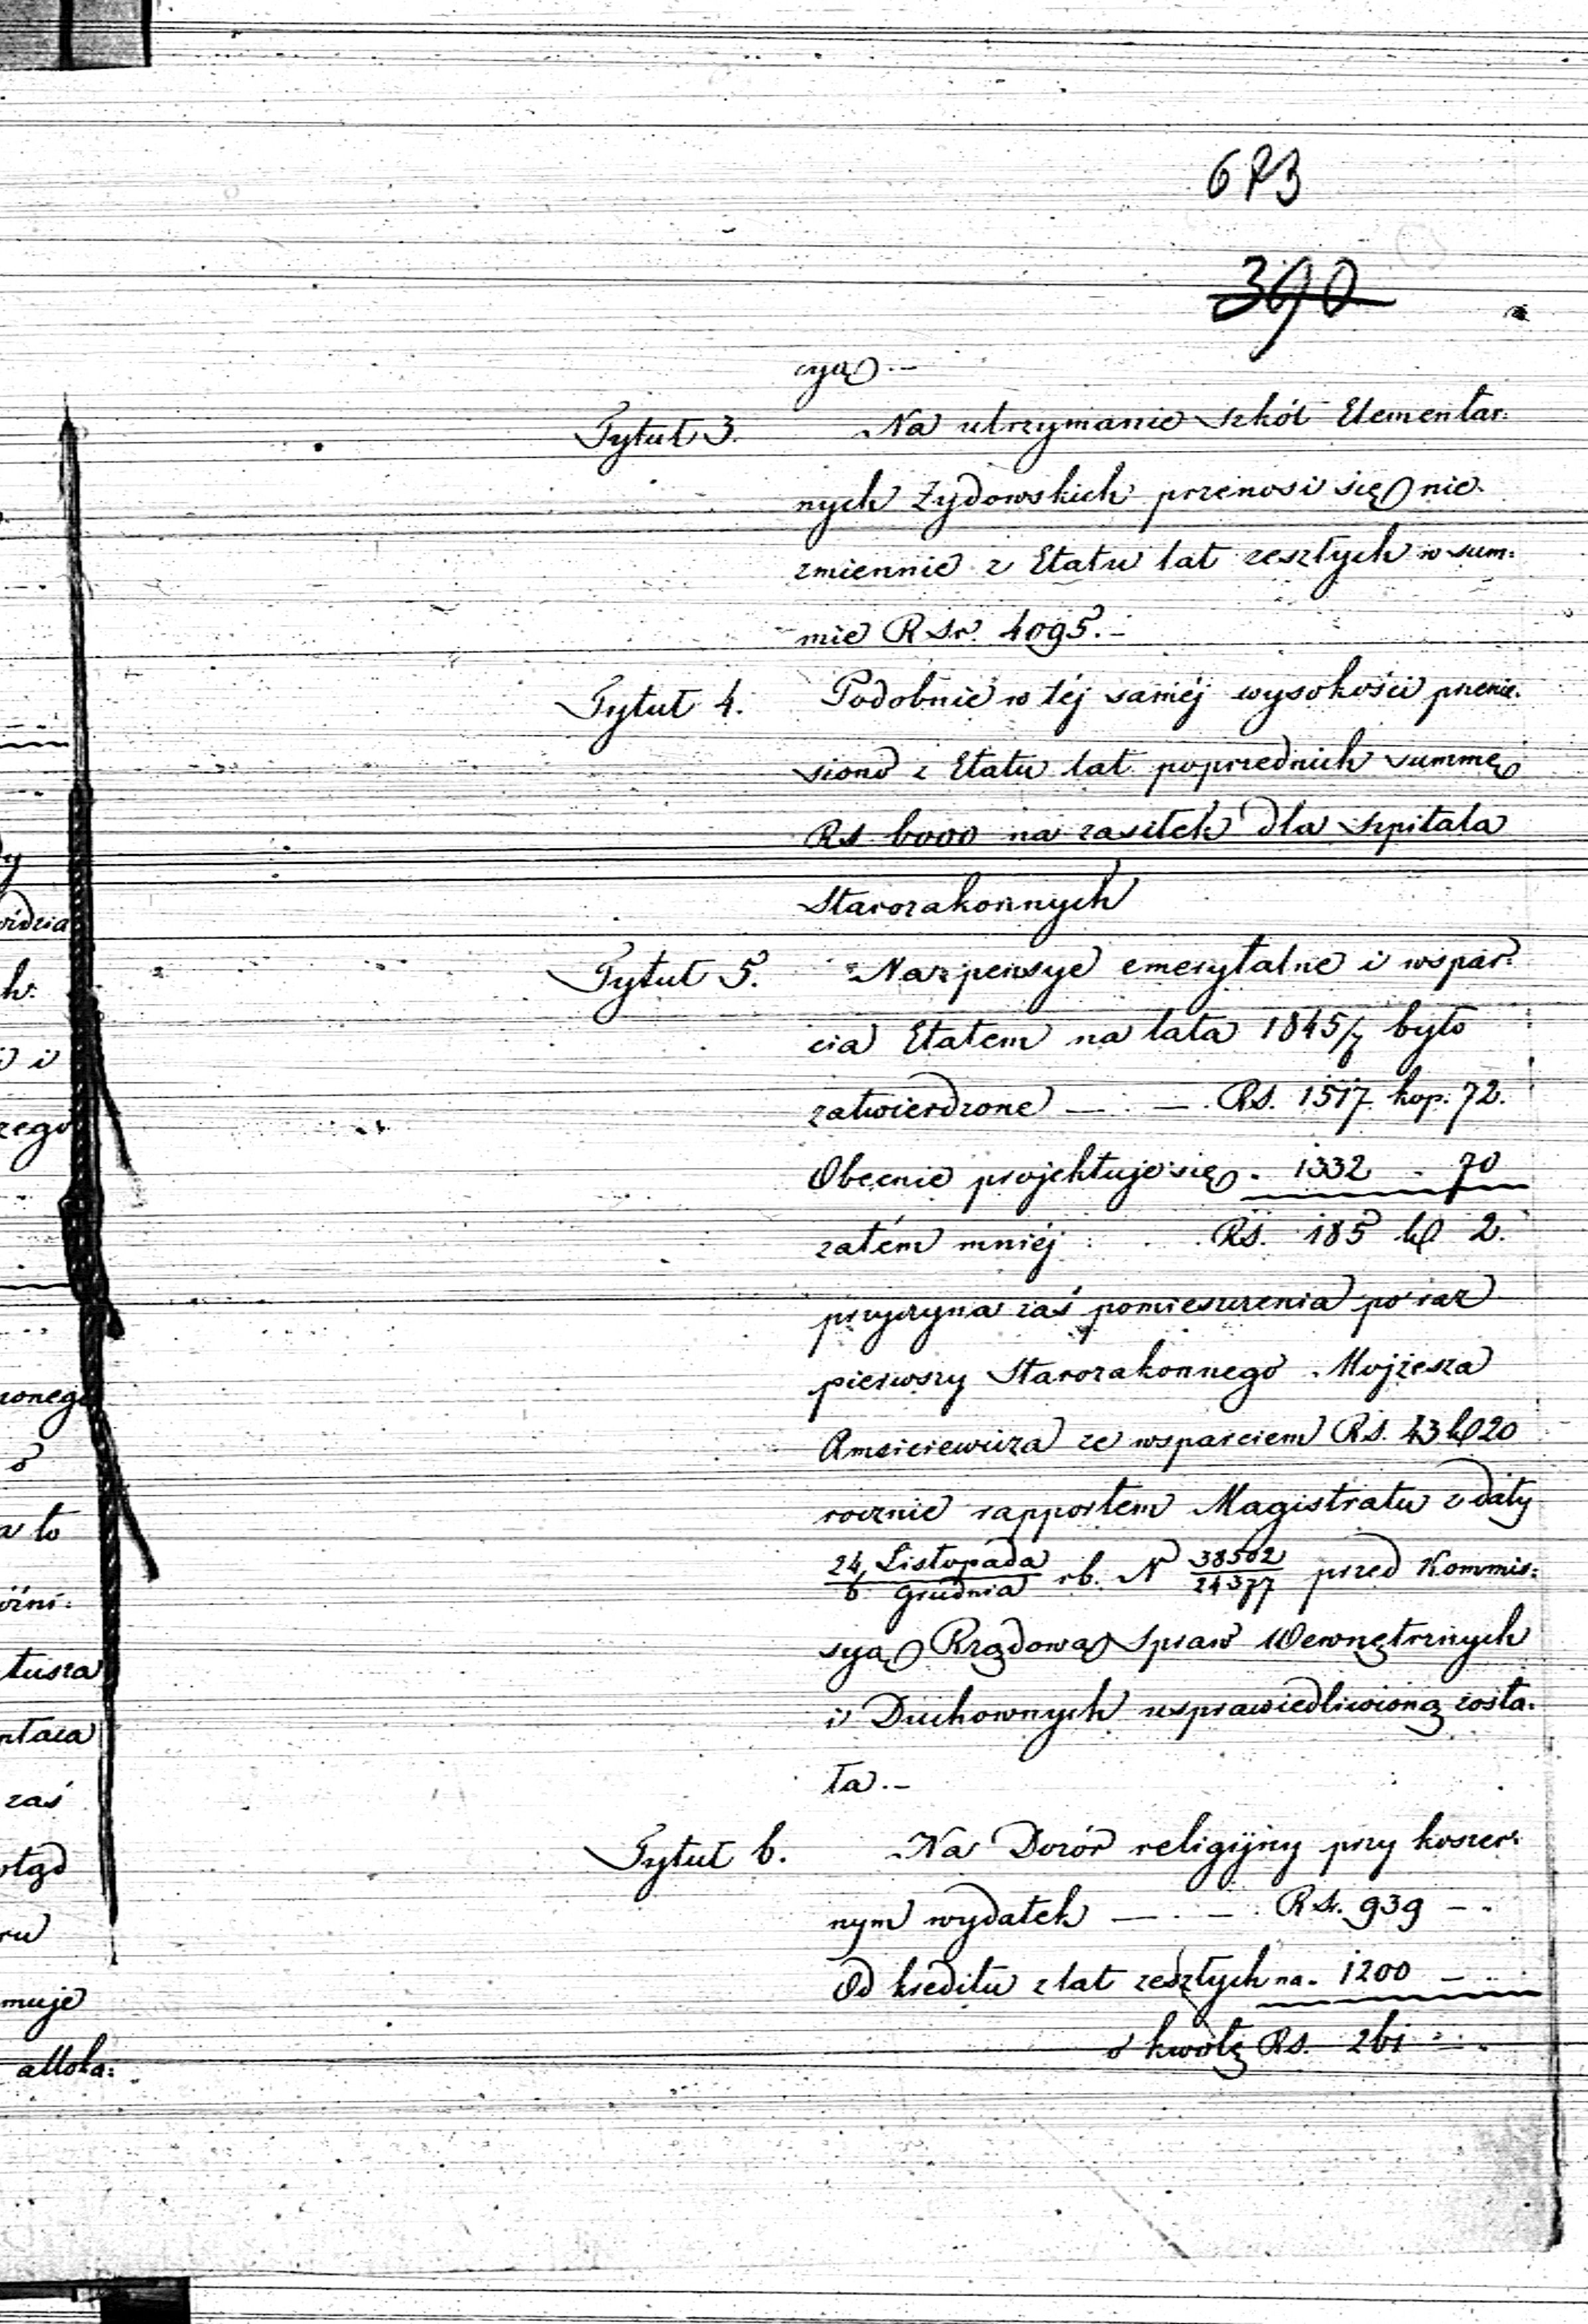 673
390
cyą.–
Tytuł 3. Na utrzymanie szkół Elementar:
nych Żydowskich przenosi się nie:
zmiennie z Etatu lat zeszłych w sum:
mie R Sr. 4095.–
Tytuł 4. Podobnie w téj saméj wysokości prenie:
siono z Etatu lat poprzednich summę
Rs 6000 na zasiłek dla szpitala
Starozakonnych
Tytuł 5. Na pensye emerytalne i wspar:
cia Etatem na lata 1845/7 było
zatwierdzone — . — . Rs. 1517 kop. 72.
Obecnie projektuje się . 1332 . 70
zatém mniéj : . . Rs. 185 k 2.
przyczyna zaś pomieszczenia po raz
pierwszy Starozakonnego Mojżesza
ze wsparciem Rs. 43 k 20
rocznie rapportem Magistratu z daty
24 Listopada / 6 Grudnia rb. N 38502/24377 przed Kommis:
syą Rządową Spraw Wewnętrznych
i Duchownych usprawiedliwioną zosta:
ła.–
Tytuł 6. Na Dozór religijny przy koszer:
nym wydatek — . — . R Sr. 939 – .
Od kreditu z lat zeszłych na . 1200 – .
o kwotę Rs. 261 – .
dy
h:
i i
zego
zonego
o
a to
tusza
zaś
ru
muje
alloka: